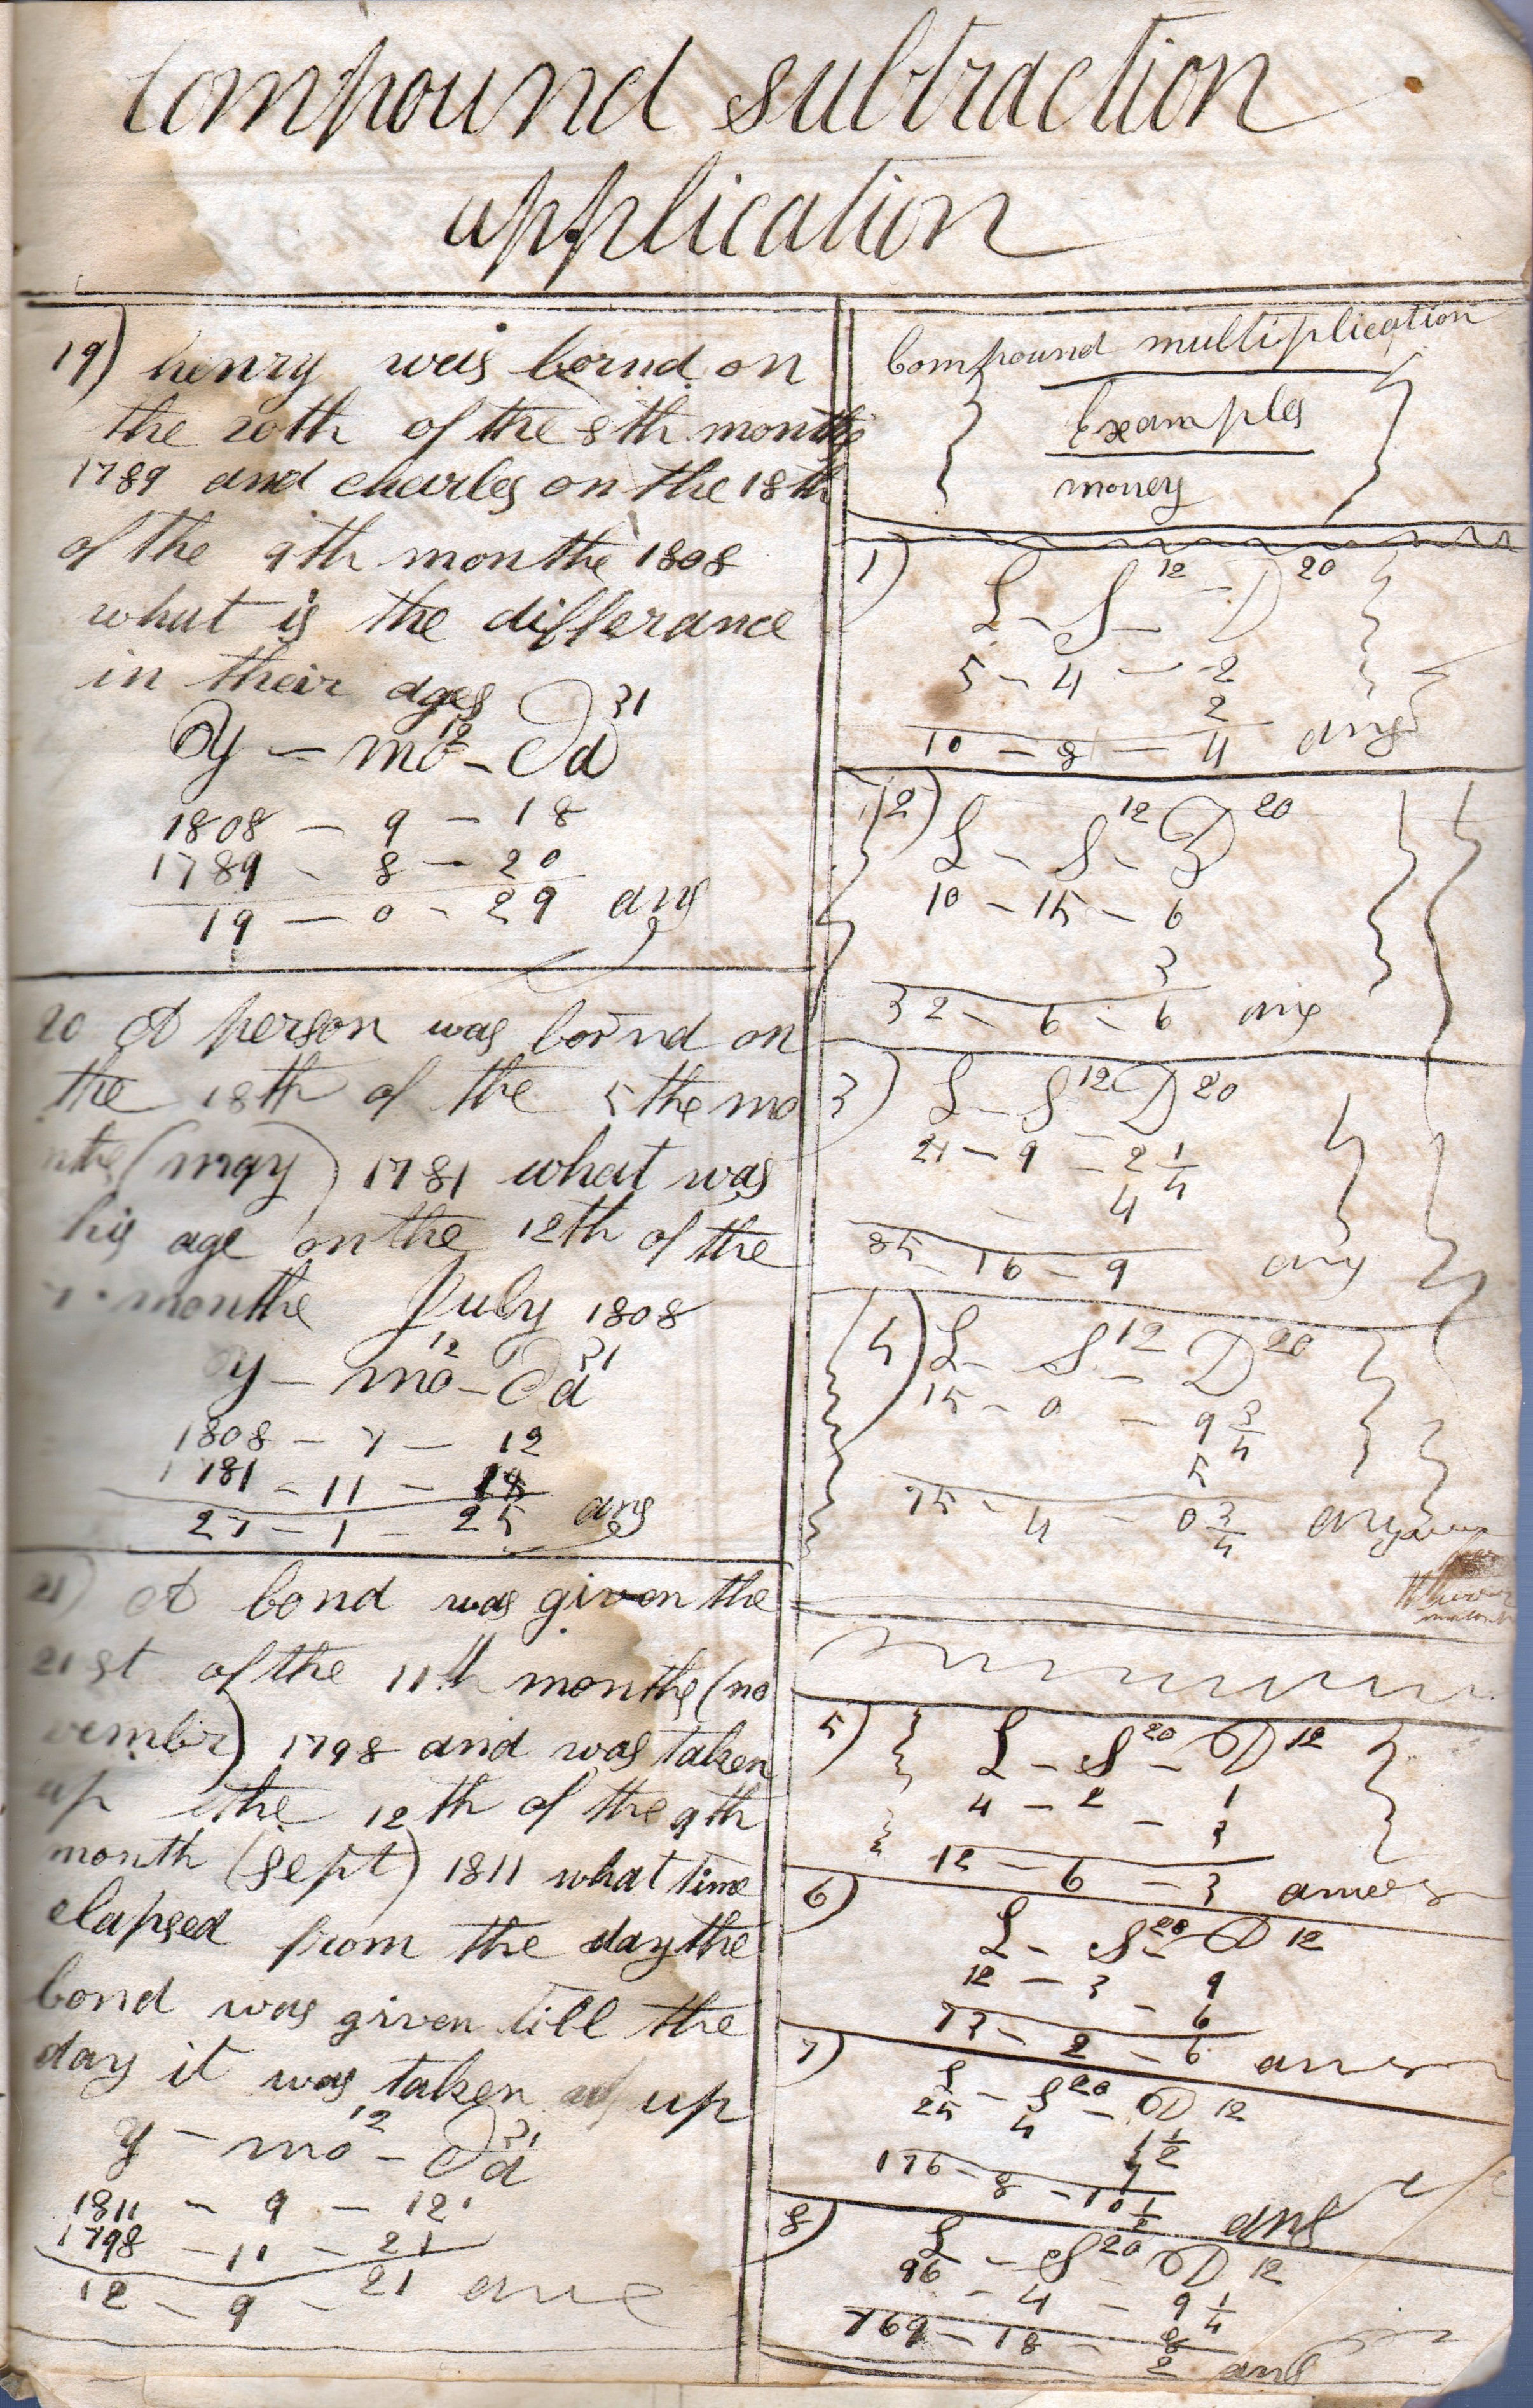 Compound subtraction
application
19) henry was bornd on
the 20th of the 8th months
1789 and charles on the 18th
of the 9th monthe 1808
what is the differance
in their ages
y - mo 12 - d 31
1808 - 9 - 18
1789 - 8 - 20
19 - 0 - 29 ans
20 A person was bornd on
the 18th of the 5 the mo
nthe (may) 1781 what was
his age on the 12th of the
7 monthe July 1808
y - mo 12 - d 31
1808 - 7 - 12
1781 - 11 - 18
27 - 1 - 25 ans
21) A bond was given the
21st of the 11th monthe (no
vember) 1798 and was taken
up the 12th of the 9th
month (sept) 1811 what time
elapsed from the day the
bond was given till the
day it was taken up
y - mo 12 - d 31
1811 - 9 - 12
1798 - 11 - 21
12 - 9 - 21 ans
Compound multiplication
Examples
money
1) L - S 12 - D 20
5 - 4 - 2
2
10 - 8 - 4 ans
2) L - S 12 - D 20
10 - 15 - 6
3
32 - 6 - 6 ans
3) L - S 12 - D 20
21 - 9 - 2 1/4
4
85 - 16 - 9 ans
4) L - S 12 - D 20
15 - 0 - 9 3/4
5
75 - 4 - 0 3/4
5) L - S 20 - D 12
4 - 2 - 1
3
12 - 6 - 3
6)
L - S 20 - D 12
12 - 3 9
6
73 - 2 - 6
7)
L - S 20 - D 12
25 4 1 1/2
7
176 - 8 - 10 1/2 ans
8) L - S 20 D 12
96 - 4 - 9 1/4
8
769 - 18 - 2 ans